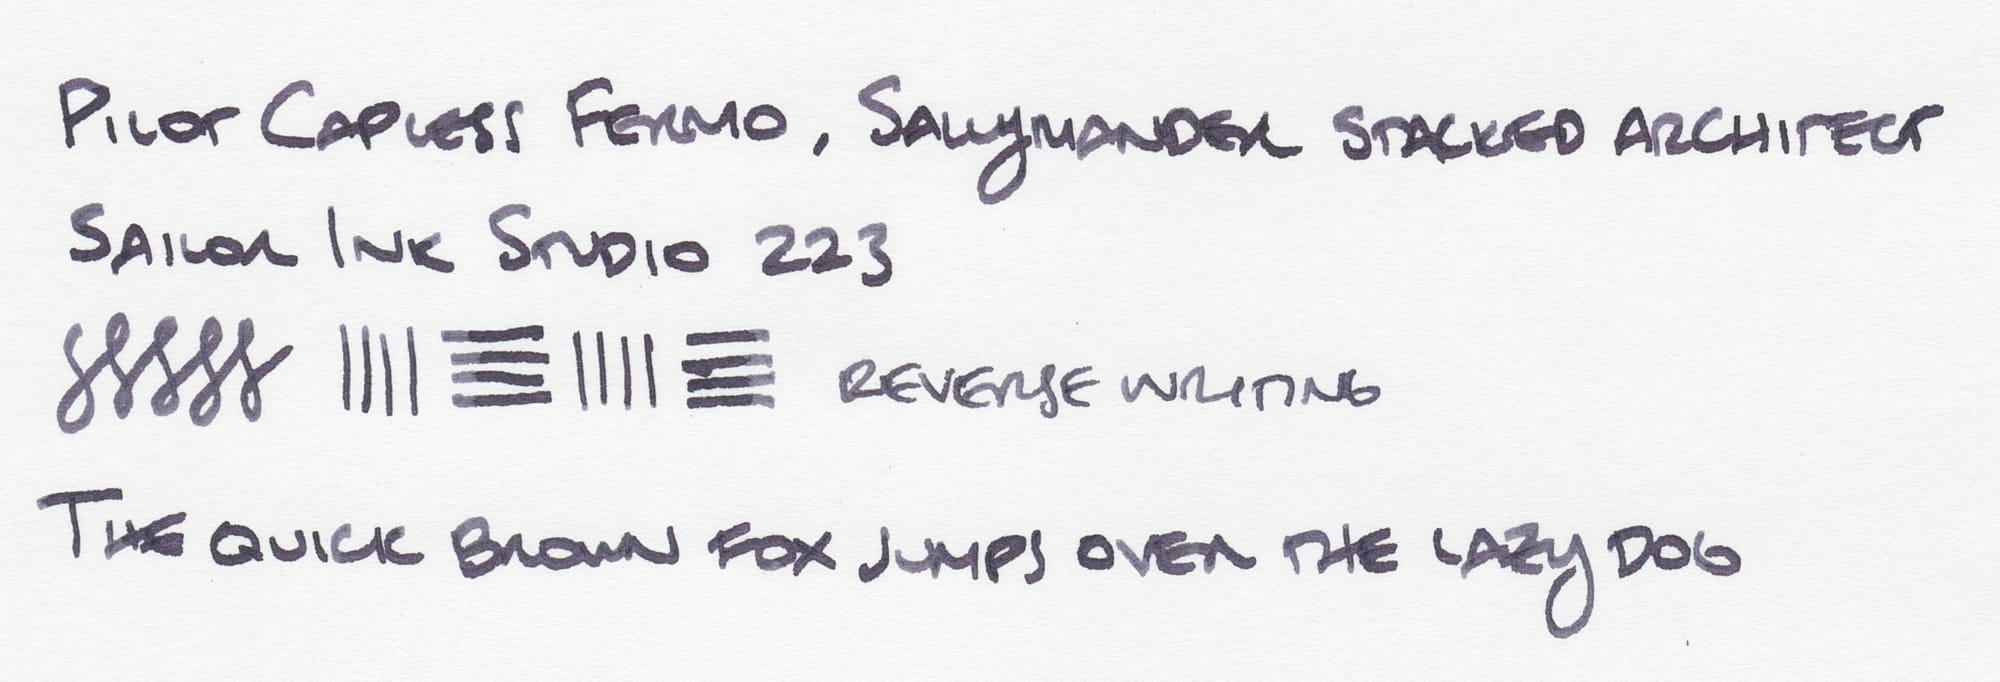 Pilot Capless Fermo, Sallymander stacked architect
Sailor Ink Studio 223
reverse writing
The quick brown fox jumps over the lazy dog